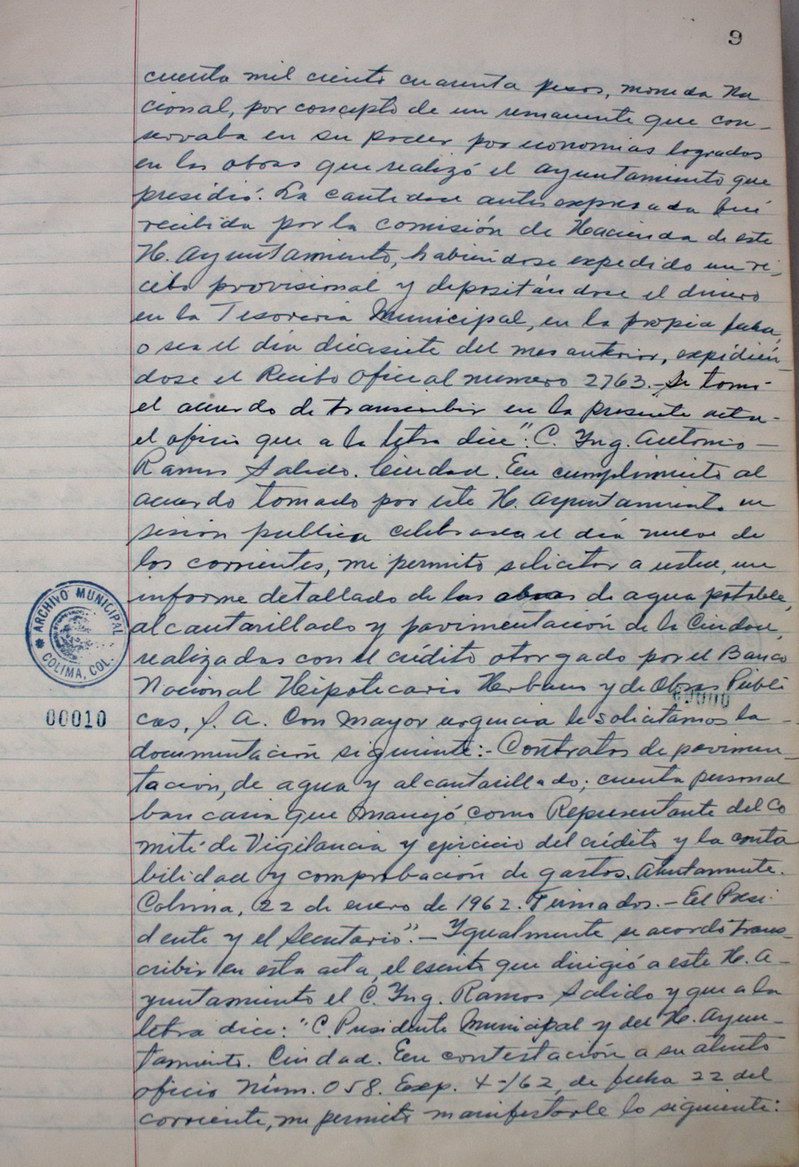 9
cuenta mil ciento cuarenta pesos, moneda Na
cional, por concepto de un remanente que con-
servaba en su poder por economias logradas
en las obras que realizó el ayuntamiento que
presidió. La cantidad antes expresada fué
recibida por la comisión de Hacienda de este
H. Ayuntamiento, habiendose expedido un re-
cibo provisional y depositándose el dinero
en la Tesoreria Municipal, en la propia fecha,
o sea el día diecisiete del mes anterior, expidién-
dose el Recibo Oficial numero 2763.- Se tomó-
el acuerdo de transcribir en la presente acta-
el oficio que a la letra dice": C. Ing. Antonio-
Ramos Salido. Ciudad. En cumplimiento al
acuerdo tomado por este H. Ayuntamiento en
sesión publica celebrada el día nueve de
los corrientes, me permito solicitar a usted, un
informe detallado de las obras de agua potable,
alcantarillado y pavimentación de la Ciudad,
realizadas con el crédito otorgado por el Banco
Nacional Hipotecario Urbano y de Obras Públi
cas, S. A. Con mayor urgencia le solicitamos la-
documentación siguiente:- Contratos de pavimen-
tacion, de agua y alcantarillado; cuenta personal
bancaria que manejó como Representante del Co
mité de Vigilancia y ejercicio del crédito y la conta
bilidad y comprobación de gastos. Atentamente.
Colima, 22 de enero de 1962. Firmados.- El Presi-
dente y el Secretario".- Ygualmente se acordó trans-
cribir en esta acta, el escrito que dirigió a este H. A-
yuntamiento el C. Ing. Ramos Salido y que a la
letra dice: "C. Presidente Municipal y del H. Ayun-
tamiento. Ciudad. En contestación a su atento
oficio Núm. 058. Exp. 4-/62, de fecha 22 del
corriente, me permito manifestarle lo siguiente:
ARCHIVO MUNICIPAL
COLIMA, COL.
00010